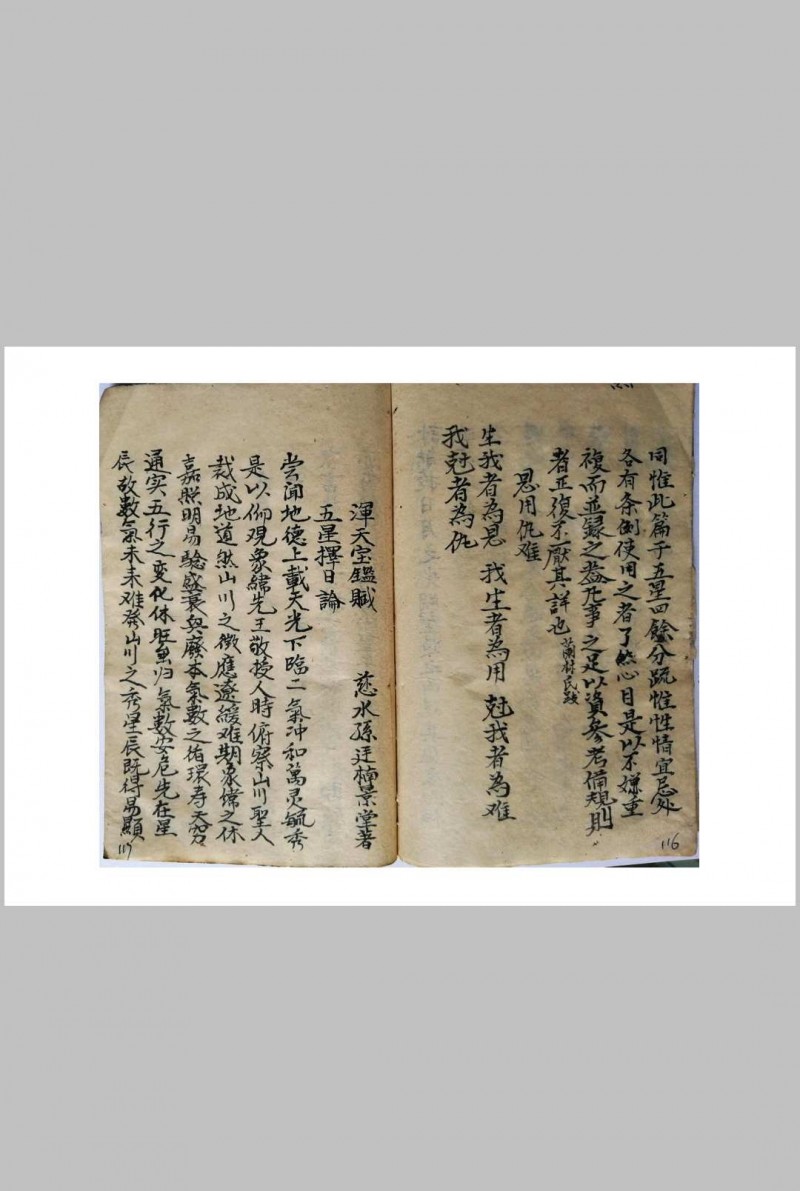 同惟此篇于五星四餘分疏惟性情宜忌処
各有条例使用之者了然心目是以不嫌重
複而並録之盖凡事之足以資参考備規則
者正復不厭其詳也 蘭村氏跋
恩用仇难
生我者為恩 我生者為用 尅我者為难
我尅者為仇
116
渾天宝鑑賦 慈水孫廷楠景堂著
五星擇日論
尝闻地德上載天光下臨二氣冲和萬灵毓秀
是以仰观象緯先王敬授人時俯察山川聖人
裁成地道然山川之徵應遠緩难期象緯之休
嘉照明易驗盛衰與廢本氣數之循環寿夭窮
通实五行之变化休旺虽归氣數安危先在星
辰故數氣未来难發山川之秀星辰既得易顯
117